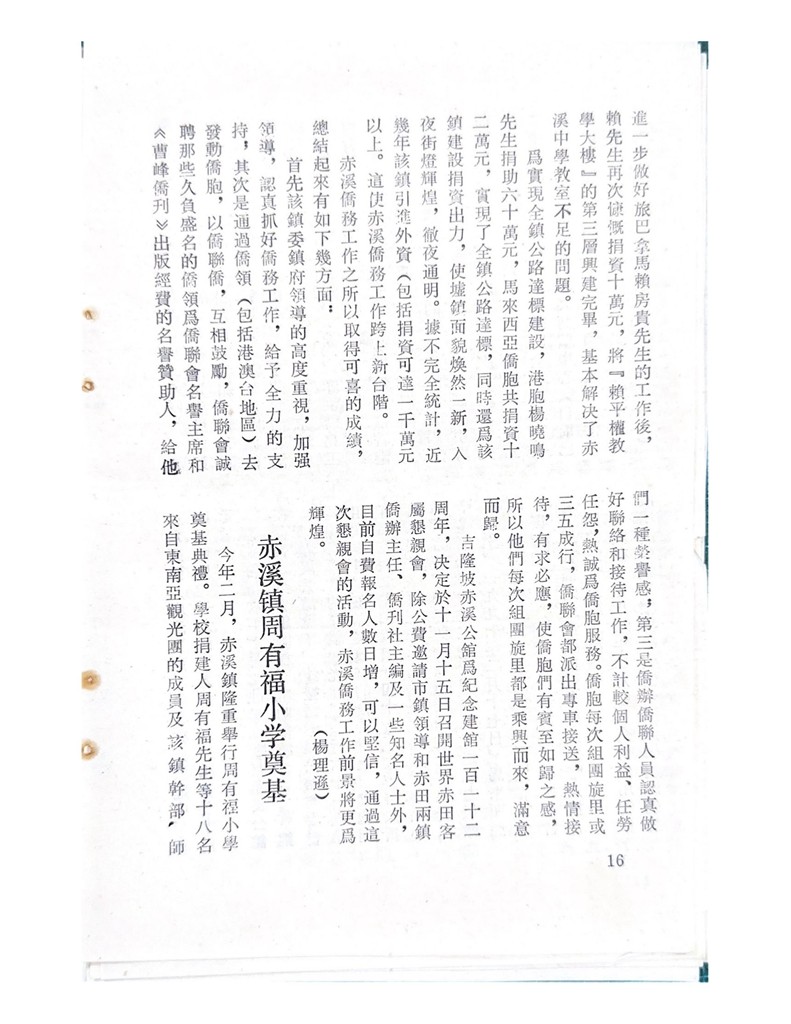 進一步做好旅巴拿馬賴房貴先生的工作後，
賴先生再次慷慨捐資十萬元，將『賴平權教
學大樓』的第三層興建完畢，基本解决了赤
溪中學教室不足的問題。
爲實現全鎮公路達標建設，港胞楊曉鳴
先生捐助六十萬元，馬來西亞僑胞共捐資十
二萬元，實現了全鎮公路達標，同時還爲該
鎮建設捐資出力，使墟鎮面貌煥然一新，入
夜街燈輝煌，徹夜通明。據不完全統計，近
幾年該鎮引進外資（包括捐資可達一千萬元
以上。這使赤溪僑務工作跨上新台階。
赤溪僑務工作之所以取得可喜的成績，
總結起來有如下幾方面：
首先該鎮委鎮府領導的高度重視，加强
領導，認真抓好僑務工作，給予全力的支
持，其次是通過僑領（包括港澳台地區）去
發動僑胞，以僑聯僑，互相鼓勵，僑聯會誠
聘那些久負盛名的僑領爲僑聯會名譽主席和
《曹峰僑刊》出版經費的名譽贊助人，給他
們一種榮譽感，第三是僑辦僑聯人員認真做
好聯絡和接待工作，不計較個人利益、任勞
任怨，熱誠爲僑胞服務。僑胞每次組團旋里或
三五成行，僑聯會都派出專車接送，熱情接
待，有求必應，使僑胞們有賓至如歸之感，
所以他們每次組團旋里都是乘興而來，滿意
而歸。
吉隆坡赤溪公館爲紀念建館一百一十二
周年，决定於十一月十五日召開世界赤田客
屬懇親會，除公費邀請市鎮領導和赤田兩鎮
僑辦主任、僑刊社主編及一些知名人士外，
目前自費報名人數日增，可以堅信，通過這
次懇親會的活動，赤溪僑務工作前景將更爲
輝煌。
（楊理遜）
赤溪镇周有福小学奠基
今年二月，赤溪鎮隆重舉行周有福小學
奠基典禮。學校捐建人周有福先生等十八名
來自東南亞觀光團的成員及該鎮幹部，師
16